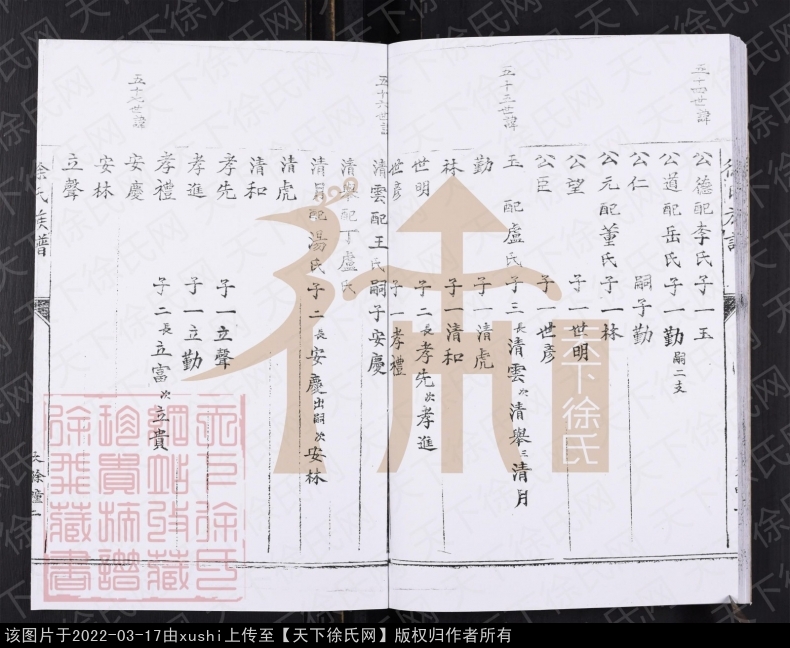 五十四世諱
公德配李氏子一玉
公道配岳氏子一勤嗣二支
公仁 嗣子勤
公元配董氏子一林
公望 子一世明
公臣 子一世彥
玉 配盧氏子三長清雲次清舉三清月
勤 子一清虎
林 子一清和
世明 子二長孝先次孝進
世彥 子一孝禮
五十六世諱
清雲配王氏嗣子安慶
清舉配丁盧氏
清月配湯氏子二長安慶出嗣次安林
清虎
清和
孝先 子一立聲
孝進 子一立勤
孝禮 子二長立富次立貴
安慶
安林
立聲
徐氏族譜
天下徐氏
天下徐氏网
该图片于2022-03-17由xushi上传至【天下徐氏网】版权归作者所有